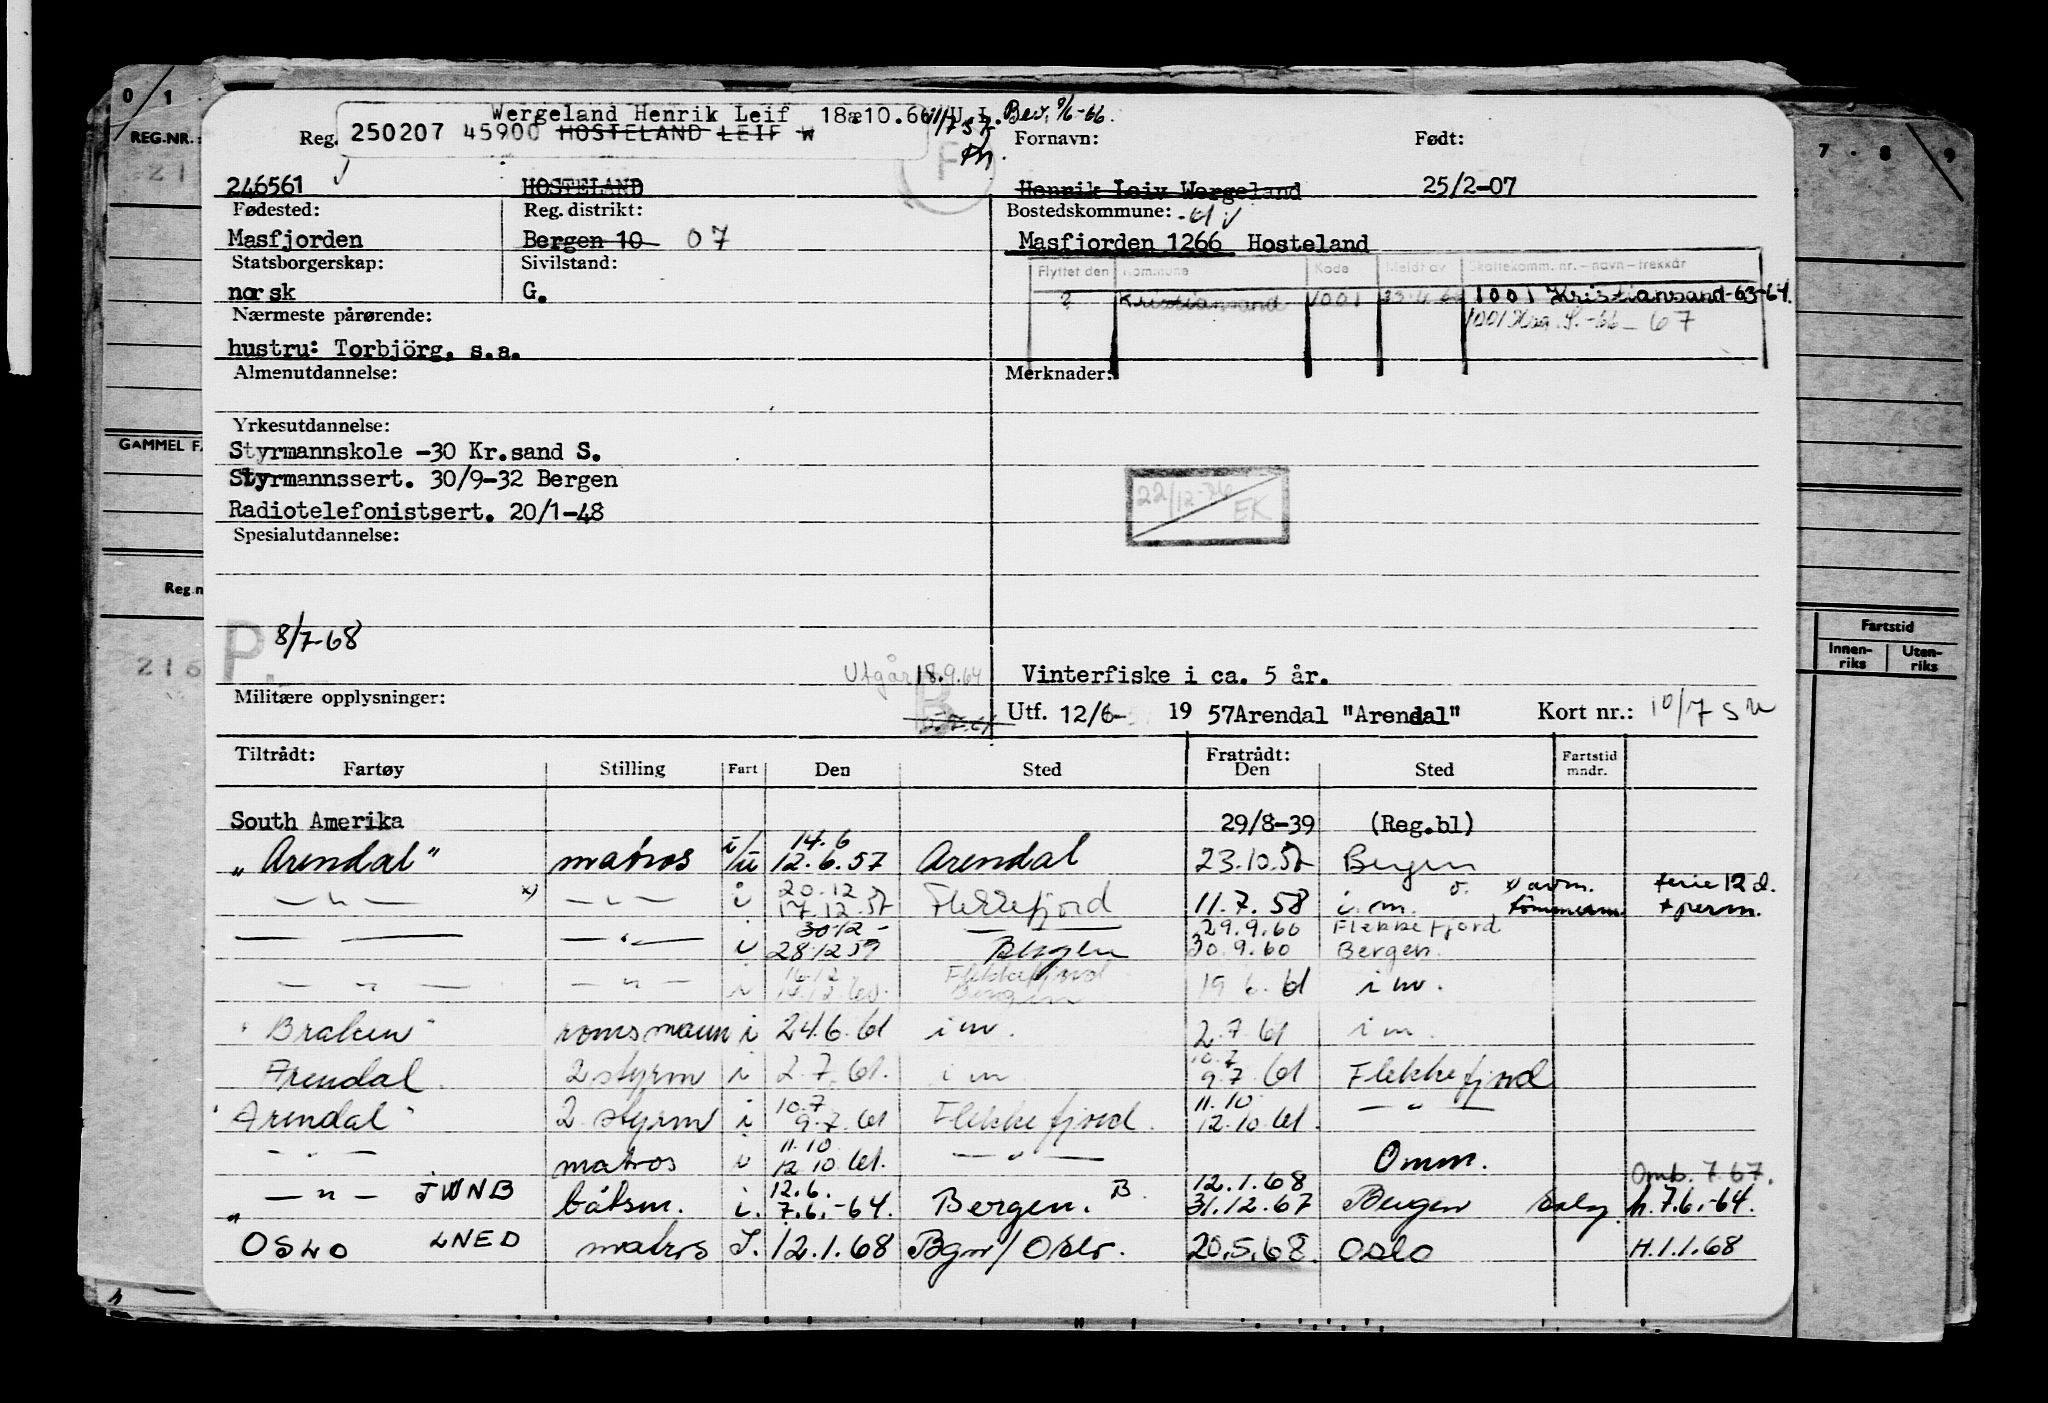 0 1
REG.NR.:
Wergeland Henrik Leif 18æ10.66
Bev. 9/6-66.
Reg. 250207 45900 HOSTELAND LEIF W
Fornavn: Født:
246561 HOSTELAND Henrik Leiv Wergeland 25/2-07
Fødested: Reg. distrikt: Bostedskommune:
Masfjorden Bergen 10 07 Masfjorden 1266 Hosteland
Statsborgerskap: Sivilstand:
Flyttet den Kommune Kode Meldt av Skattekomm. nr. - navn - trekkår
norsk G.
? Kristiansand 1001 1001 Kristiansand-63-64.
Nærmeste pårørende:
-66-67
hustru: Torbjörg, s.a.
Almenutdannelse: Merknader:
Yrkesutdannelse:
GAMMEL F.
Styrmannskole -30 Kr.sand S.
Styrmannssert. 30/9-32 Bergen
22/12-76 EK
Radiotelefonistsert. 20/1-48
Spesialutdannelse:
Reg.n
P. 8/7-68
216
Fartstid
Innen-riks Uten-riks
Utgår 18.9.64
Vinterfiske i ca. 5 år.
Militære opplysninger: B
Utf. 12/6- 19 57Arendal "Arendal" Kort nr.: 10/7 s
Tiltrådt: Fratrådt: Fartstid mndr.
Fartøy Stilling Fart Den Sted Den Sted
South Amerika 29/8-39 (Reg.bl)
14.6
"Arendal" matros i/u 12.6.57 Arendal 23.10.57 Bergen
20.12
— " — x) — " — i 17.12.57 Flekkefjord 11.7.58 i.m. x) avm. tømmerm. ferie 12 d. + perm.
30.12 — 29.9.60 Flekkefjord
— — — " — i 28.12.59 Bergen 30.9.60 Bergen.
Flekkefjord
— " — — " — i 14.12.60. Bergen 19.6.61 i m.
"Braken" romsmann i 24.6.61 i m. 2.7.61 i m.
10.7
Arendal 2 styrm i 2.7.61. i m 9.7.61 Flekkefjord
10.7 11.10
"Arendal" 2 styrm i 9.7.61 Flekkefjord. 12.10.61. — " —
11.10
— " — matros i 12.10.61. — " — Omm.
12.6. 12.1.68 Omb. 7.67.
— " — JWNB båtsm. i. 7.6.-64. Bergen. B. 31.12.67 Bergen salg. h.7.6.-64.
OSLO LNED matros I. 12.1.68 Bgn/Oslo. 20.5.68. Oslo H.1.1.68